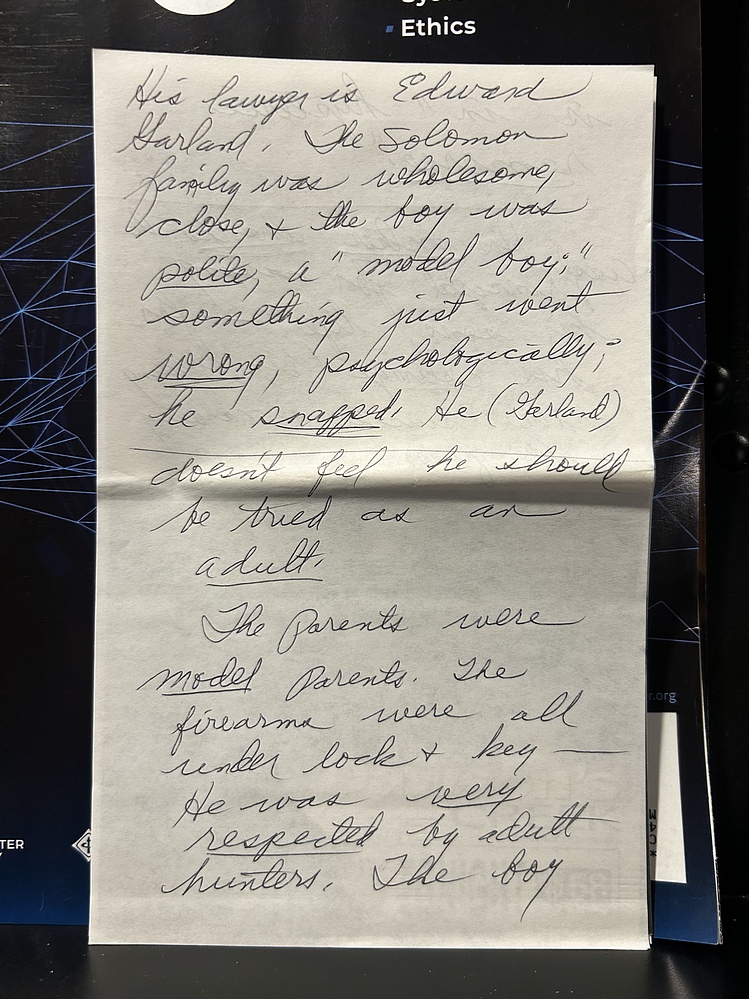 Ethics
His lawyer is Edward
Garland. The Solomon
family was wholesome,
close, & the boy was
polite, a "model boy;"
something just went
wrong, psychologically;
he snapped. He (Garland)
doesn't feel he should
be tried as an
adult.
The Parents were
model Parents. The
firearms were all
under lock & key —
He was very
respected by adult
hunters. The boy
r.org
TER